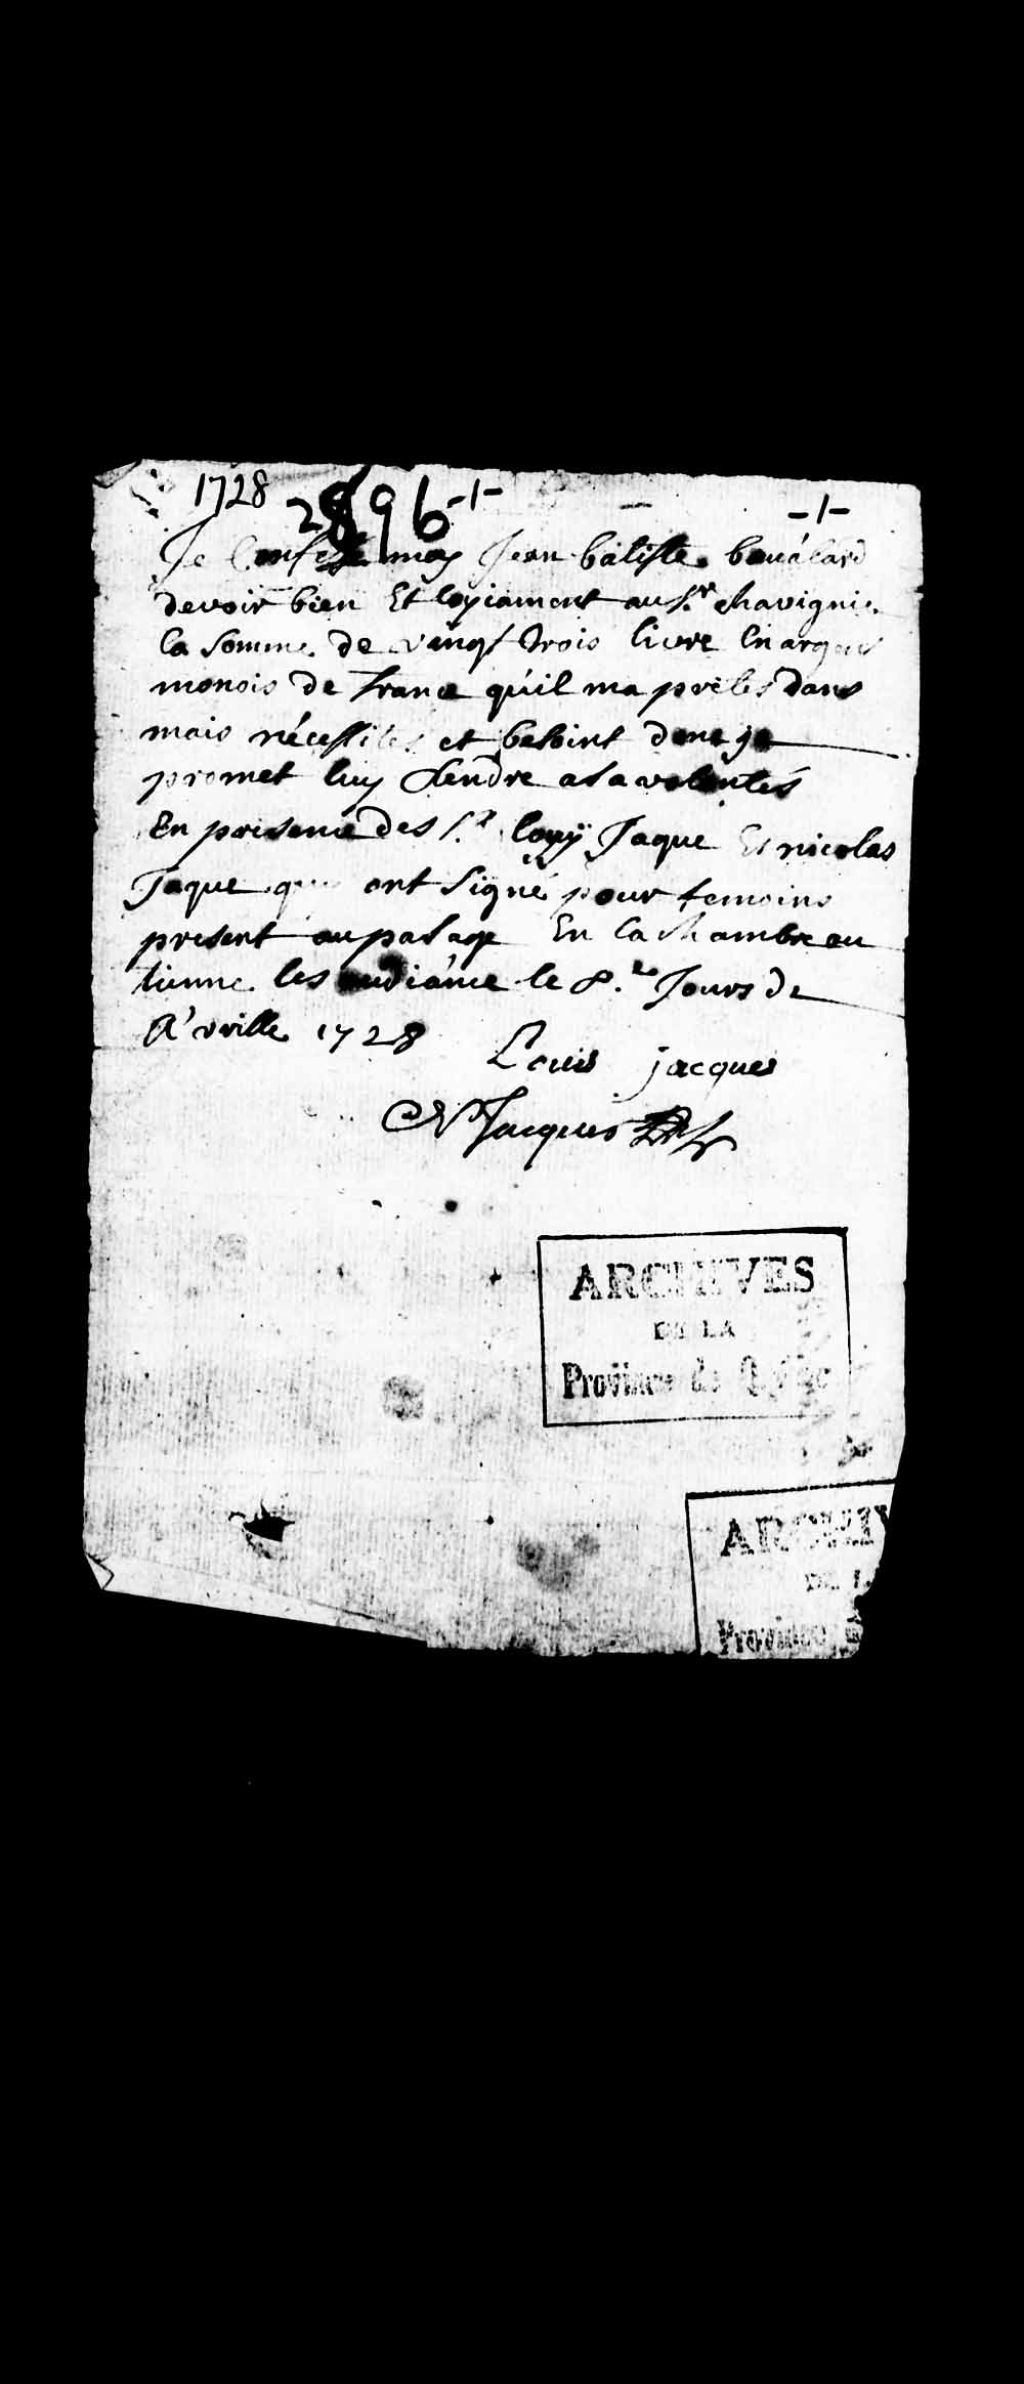 1728
2896 -1-
-1-
Je Confesse moy Jean batiste bouálard
devoir bien Et loyiament au s.r chavignie
la somme de vingt trois livre En argent
monois de france qu'il ma prétés dans
mais nécessités et besoint donc je
promet luy Rendre a sa volontés
En presence des s.r louÿ Jaque Et nicolas
Jaque qui ont signé pour temoins
present au pasage En la chambre ou
tienne les audiánce le 8.e Jours de
A'vrille 1728
Louis jacques
N Jacques
ARCHIVES
DE LA
Province de Québec
ARCHIV
DE L
Province